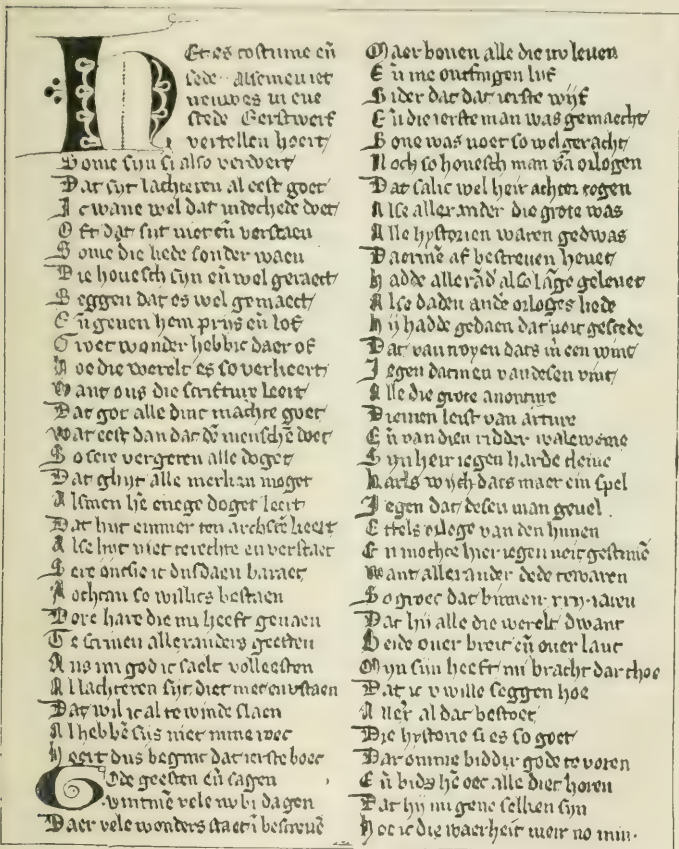 Het es costume eñ
sede Alsmen iet
nieuwes in ene
stede Eerstwerf
vertellen hoert
Some sijn si also verdoert
Dat sijt lachteren al eest goet
Ic wane wel dat indechede doet
Oft dat sijt niet eñ verstaen
Some die liede sonder waen
Die houesch sijn eñ wel geraect
Seggen dat es wel gemaect
Eñ geuen hem prijs eñ lof
Twer wonder hebbic daer of
Hoe die werelt es so verkeert
Want ons die scrifture leert
Dat got alle dinc machte goet
Wat eest dan dat dē menschē doet
So sere vergeten alle doget
Dat ghijt alle merken moget
Alsmen hē enege doget leert
Dat hijt emmer ten archstē keert
Alse hijt niet te rechte en verstaet
Sere ontsie ic dusdaen baraet
Nochtan so willics bestaen
Dore hare die mi heeft geuaen
Te scriuen allexanders geesten
Ans mi god ic saelt volleesten
Al lachteren sijt diet niet en verstaen
Dat wil ic al te winde slaen
Al hebbē sijs niet mine wet
Heert dus begint dat ierste boec
Gode geesten eñ sagen
Vintmē vele nv bi dagen
Daer vele wonders staet ī bescreuē
Maer bouen alle die nv leuen
Eñ me ontfingen lijf
Sider dat dat ierste wijf
Eñ die ierste man was gemaecht
Sone was noet so wel geracht
Noch so houesch man vā orlogen
Dat salic wel hier achter togen
Alse allexander die grote was
Alle hystorien waren gedwas
Daermē af bescreuen heuet
Hadde allexād also lāge geleuet
Alse daden ande orloges liede
Hij hadde gedaen dat noit gescede
Dat van troyen dats in een wint
Jegen datmen van desen vint
Alle die grote auonture
Diemen leist van arture
Eñ van dien ridder waleweine
Sijn hier iegen harde cleine
Karls wijch dats maer een spel
Jegen dat desen man geuel.
Ettels orloge van den hunen
Eñ mochte hier iegen niet gestunē
Want allexander dede te waren
So groet dat binnen .xij. iaren
Dat hij alle die werelt dwanc
Beide ouer breit eñ ouer lanc
Mijn sin heeft mi bracht dar thoe
Dat ic v wille seggen hoe
Allex̄ al dat bestoet
Die hystorie si es so goet
Dar omme biddic gode te voren
Eñ bidde hē oec alle diet horen
Dat hij mi gene helken sijn
Hoe ic die waerheit meer no min.